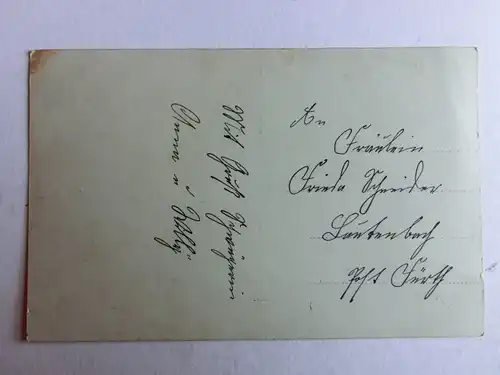 Mit Gruß Schwägerin
Anna u. Rolly
An
Fräulein
Frieda Schneider
Lautenbach
Post Fürth